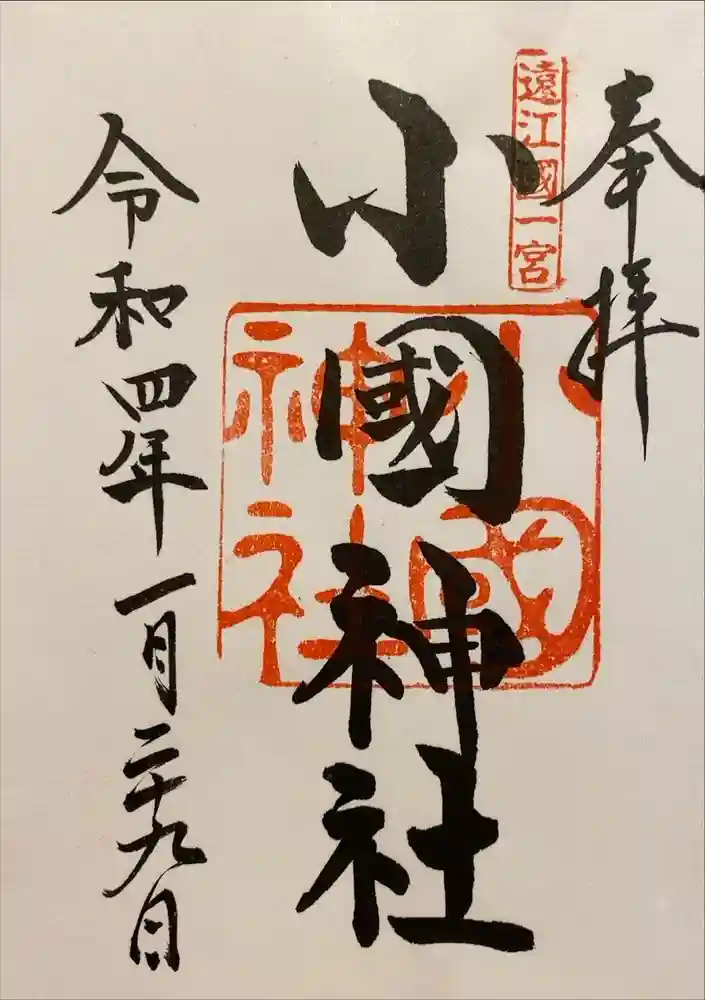 奉拝
遠江國一宮
小國神社
小國神社
令和四年一月二十九日